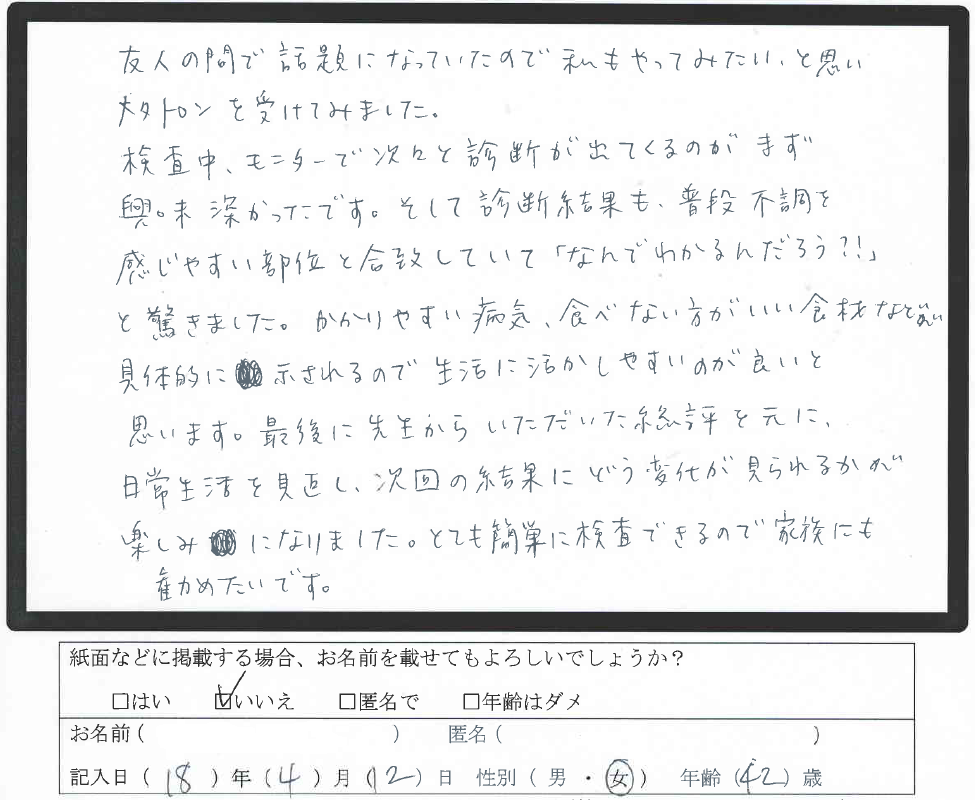 友人の間で話題になっていたので私もやってみたい、と思い
メタトロンを受けてみました。
検査中、モニターで次々と診断が出てくるのがまず
興味深かったです。そして診断結果も、普段不調を
感じやすい部位と合致していて「なんでわかるんだろう?!」
と驚きました。かかりやすい病気、食べない方がいい食材など
具体的に 示されるので生活に活かしやすいのが良いと
思います。最後に先生からいただいた総評を元に、
日常生活を見直し、次回の結果にどう変化が見られるかが
楽しみ になりました。とても簡単に検査できるので家族にも
勧めたいです。
紙面などに掲載する場合、お名前を載せてもよろしいでしょうか?
□はい ☑いいえ □匿名で □年齢はダメ
お名前( ) 匿名( )
記入日( 18 )年( 4 )月( 12 )日 性別( 男 ・ 女 ) 年齢( 42 )歳